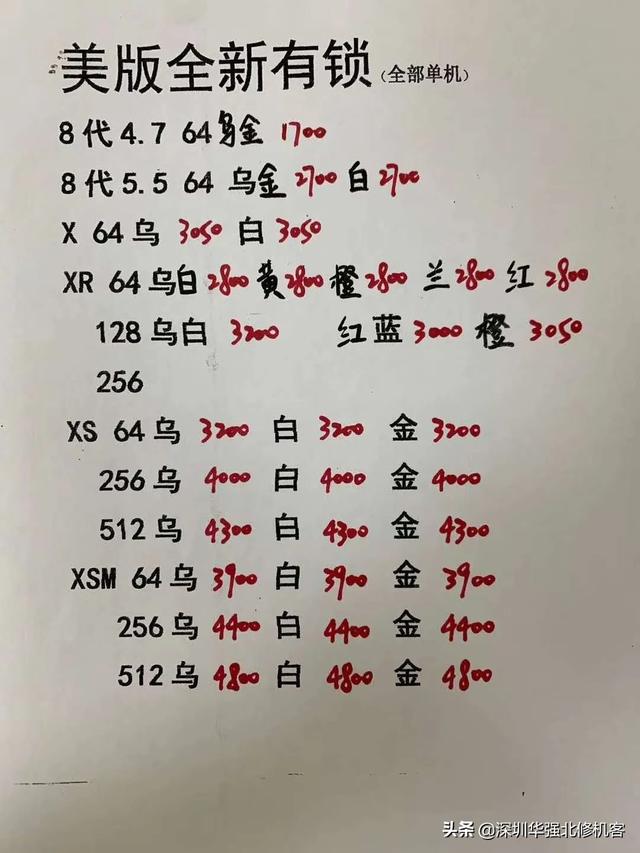 美版全新有锁（全部单机）
8代4.7 64乌金 1700
8代5.5 64 乌金2700 白2700
X 64乌 3050 白3050
XR 64乌白2800 黄2800 橙2800 兰2800 红2800
128乌白 3200 红蓝3000 橙3050
256
XS 64乌 3200 白 3200 金 3200
256乌 4000 白 4000 金 4000
512乌 4300 白 4300 金 4300
XSM 64乌 3900 白 3900 金 3900
256乌 4400 白 4400 金 4400
512乌 4800 白 4800 金 4800
头条 @深圳华强北修机客